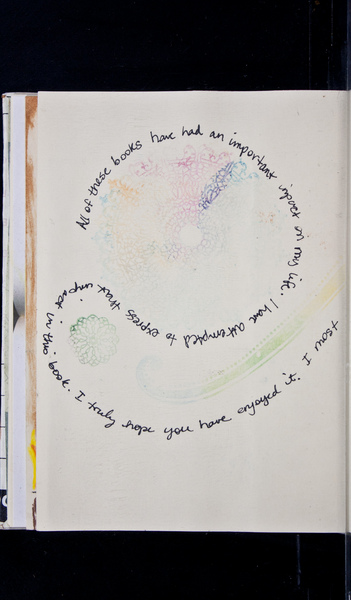 All of these books have had an important impact on my life. I have attempted to express that impact in this book. I truly hope you have enjoyed it. I most